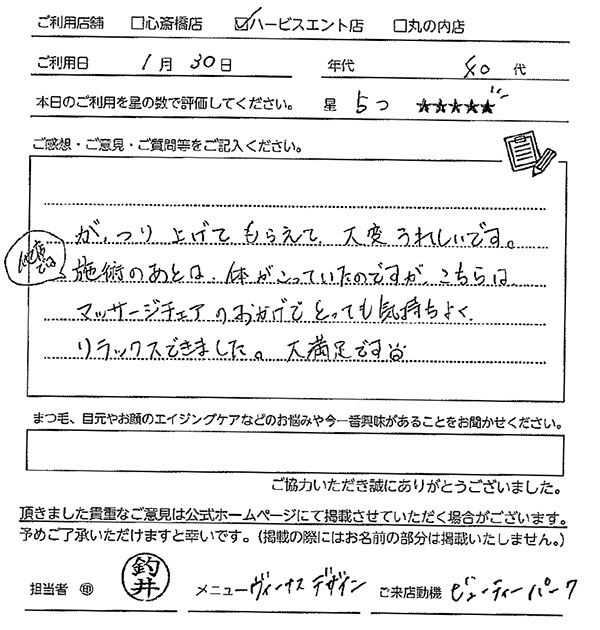 ご利用店舗 □心斎橋店 ☑ハービスエント店 □丸の内店
ご利用日 1月30日 年代 40代
本日のご利用を星の数で評価してください。 星 5つ ★★★★★
ご感想・ご意見・ご質問等をご記入ください。
が、つり上げてもらえて、大変うれしいです。
他店では
施術のあとは、体がこっていたのですが、こちらは
マッサージチェアのおかげでとっても気持ちよく
リラックスできました。大満足です
まつ毛、目元やお顔のエイジングケアなどのお悩みや今一番興味があることをお聞かせください。
ご協力いただき誠にありがとうございました。
頂きました貴重なご意見は公式ホームページにて掲載させていただく場合がございます。
予めご了承いただけますと幸いです。(掲載の際にはお名前の部分は掲載いたしません。)
担当者 ㊞ 釣井 メニュー ヴィーナスデザイン ご来店動機 ビューティーパーク